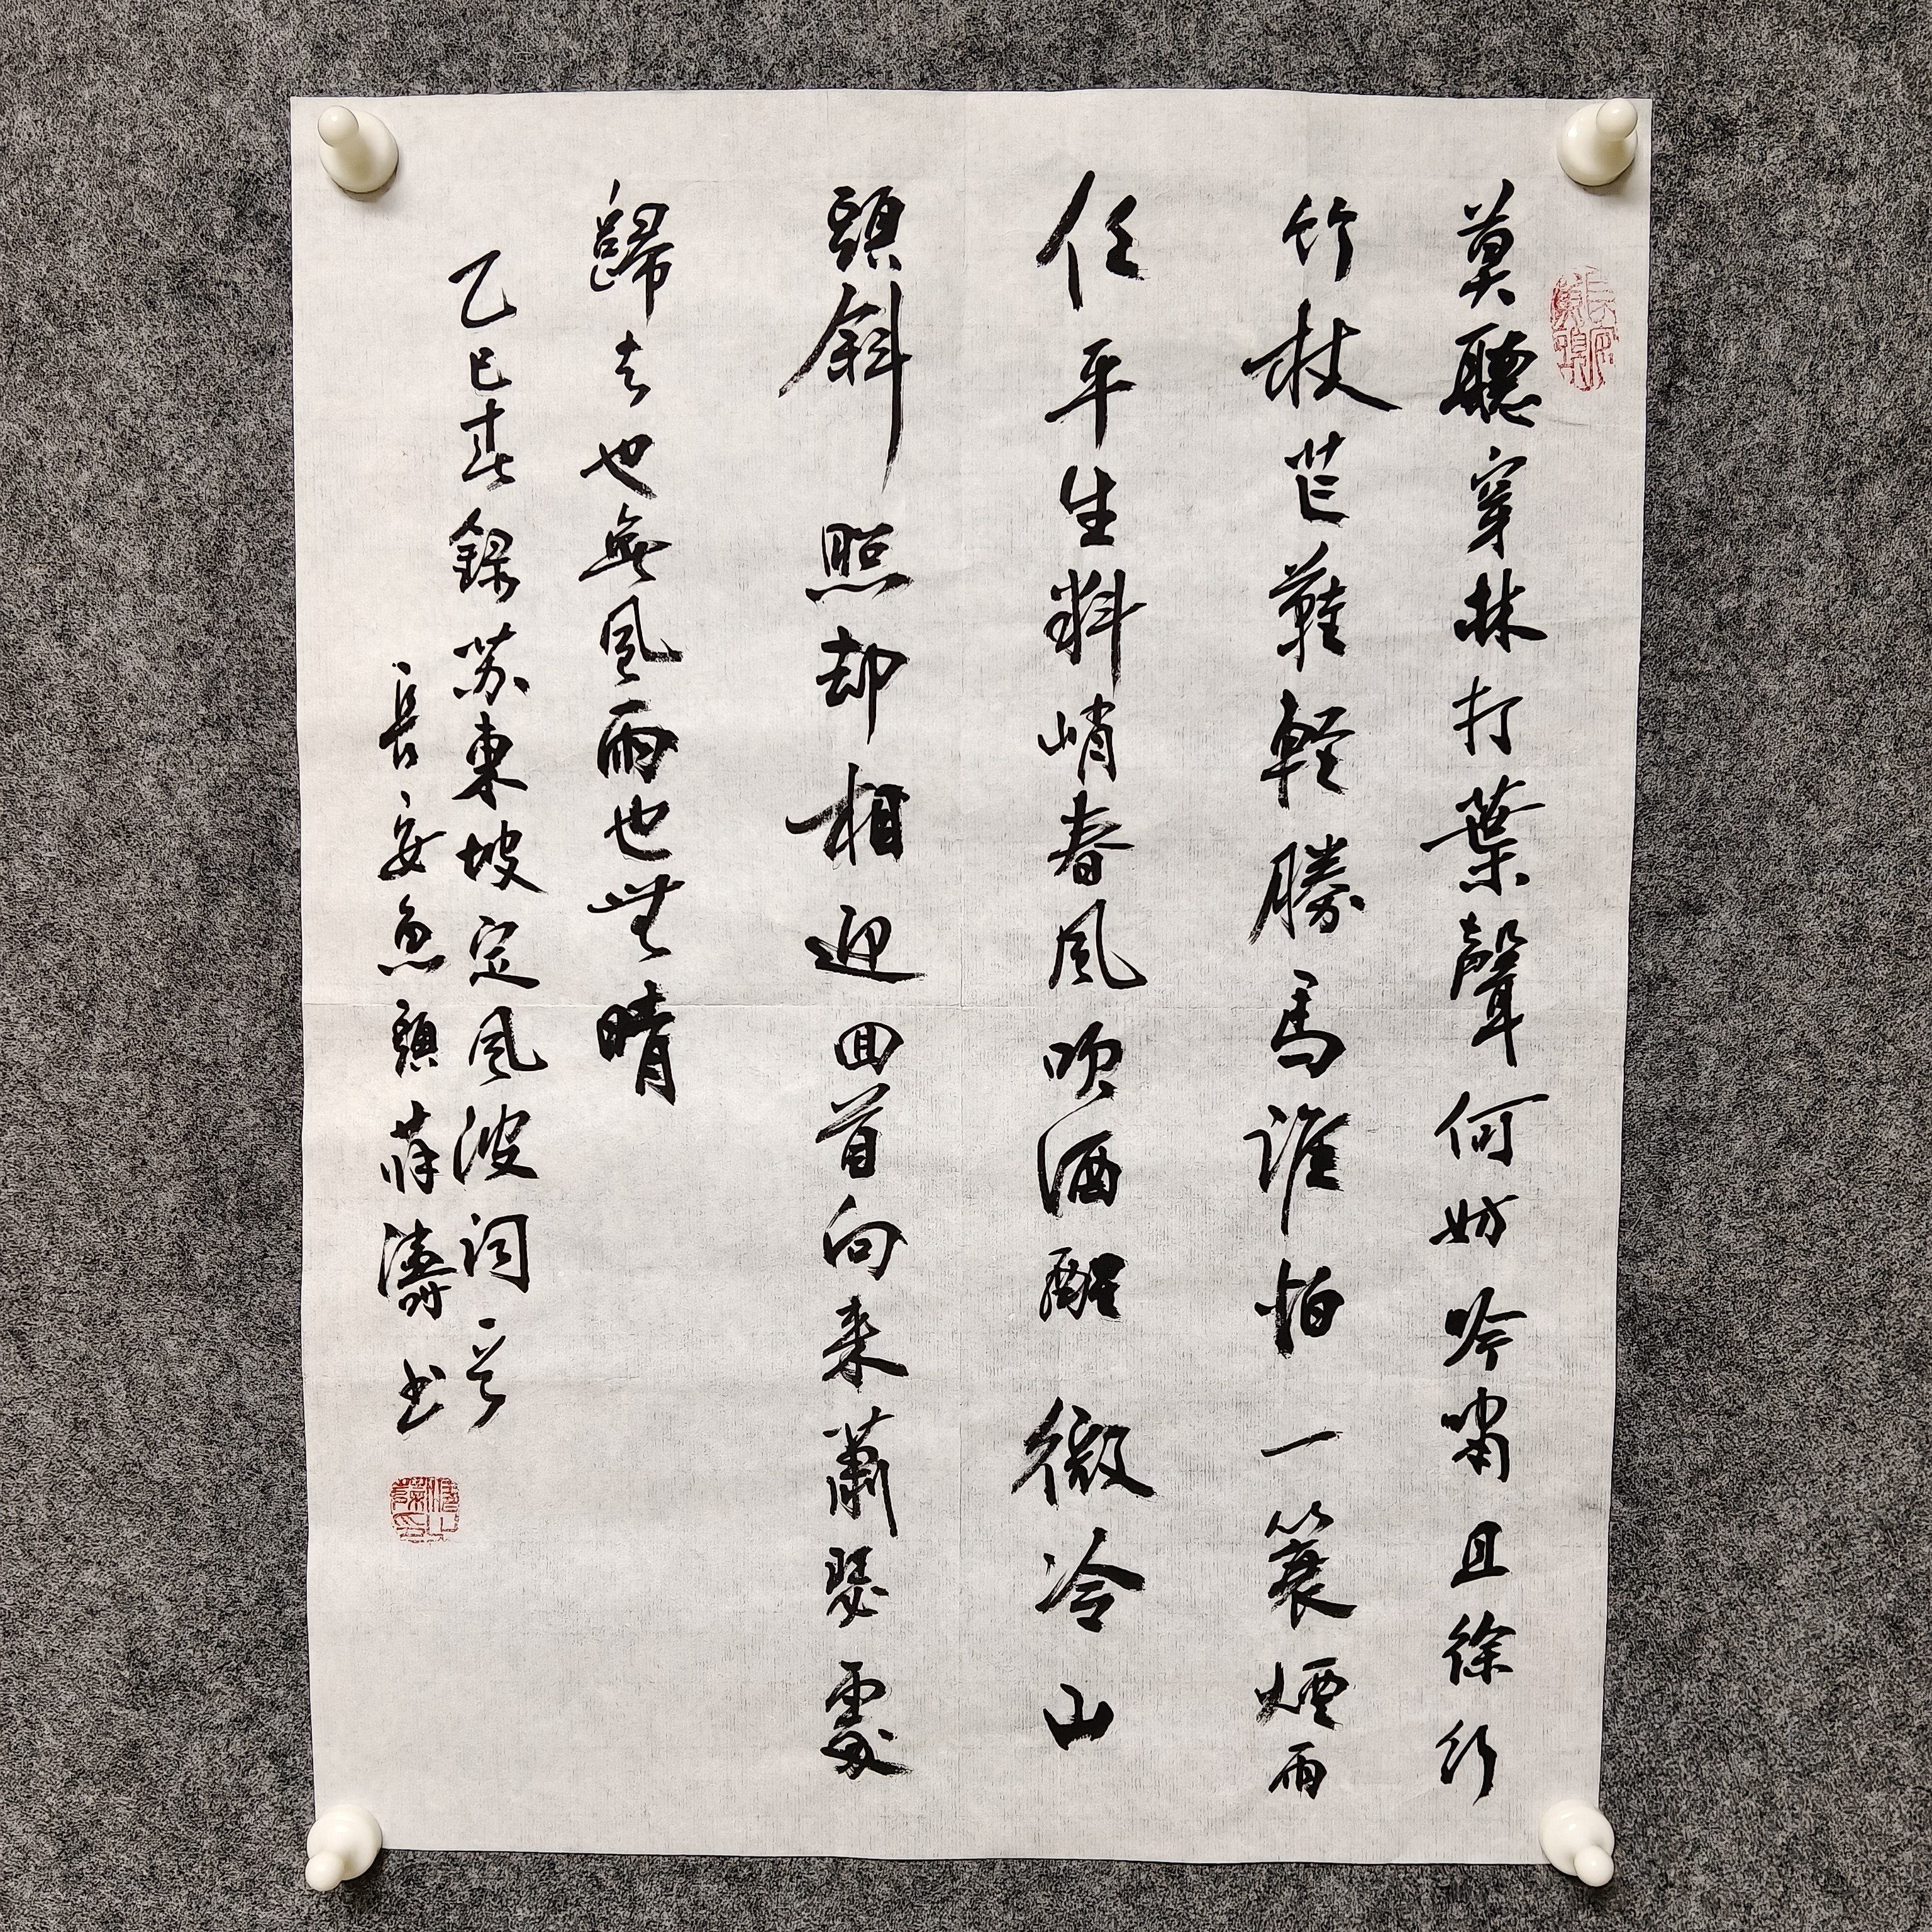 莫聽穿林打葉聲何妨吟嘯且徐行
竹杖芒鞋軽勝馬誰怕一蓑煙雨
任平生料峭春風吹酒醒微冷山
頭斜照却相迎回首向来蕭瑟處
歸去也無風雨也無晴
乙巳春錄苏東坡定風波詞一首
長安魚頭蒋濤书